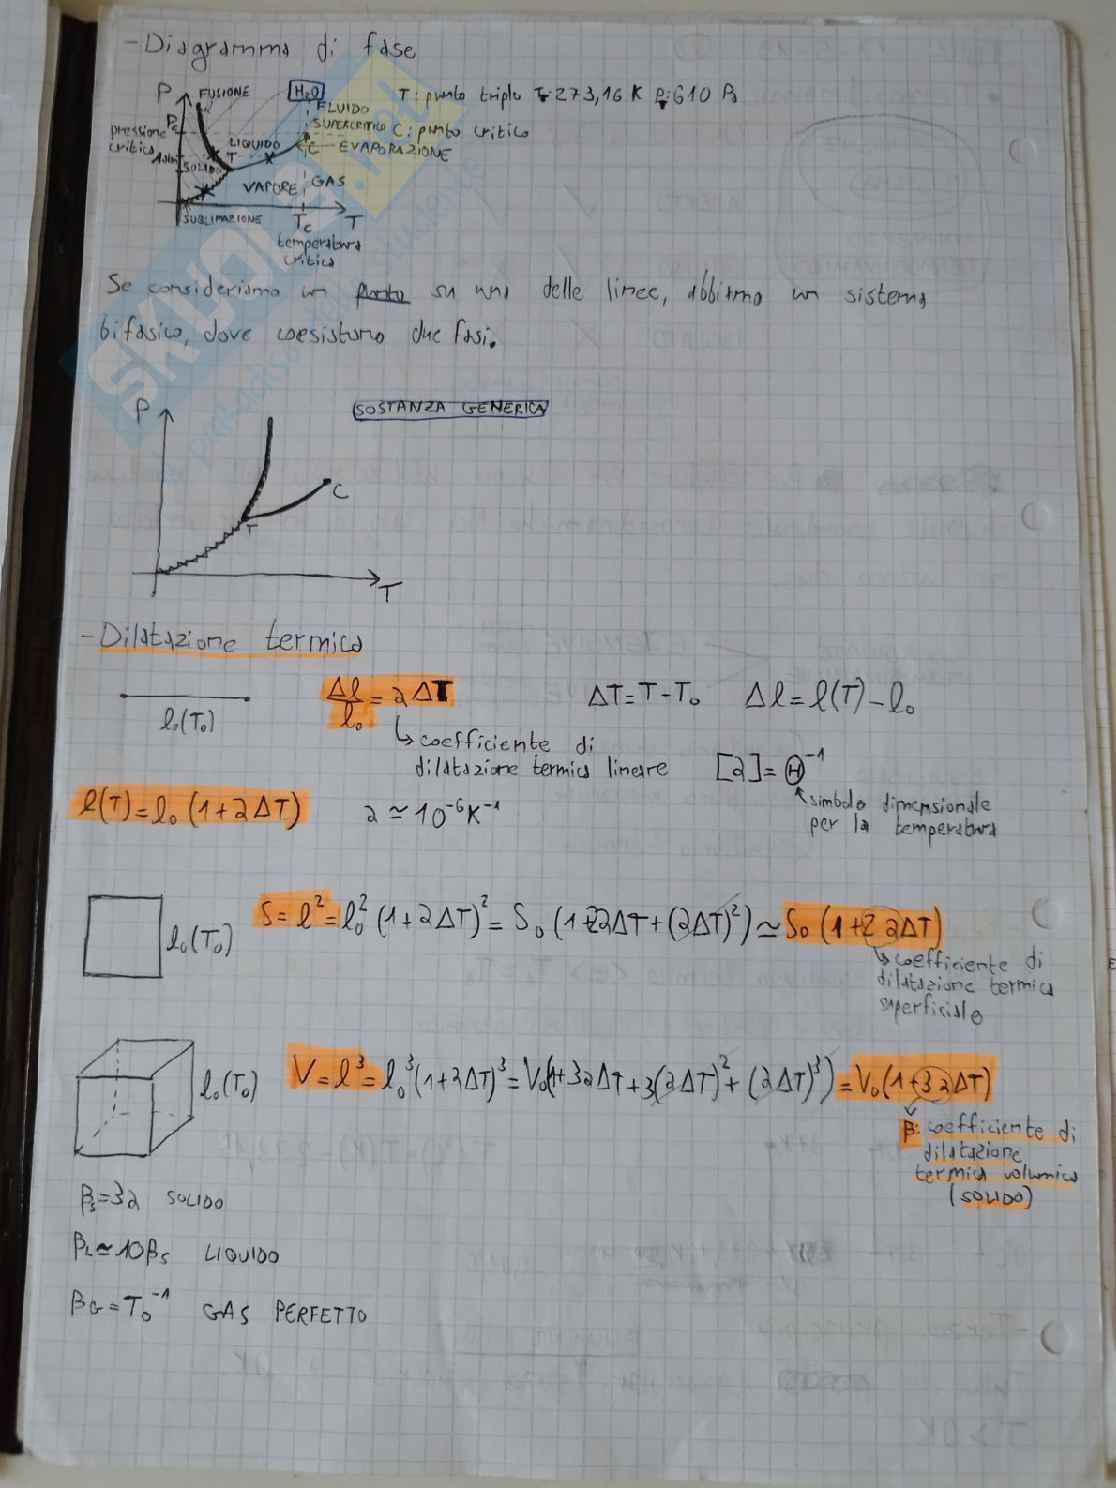 - Diagramma di fase
P FUSIONE H₂O T: punto triplo T=273,16 K P=610 Pa
Pc FLUIDO SUPERCRITICO C: punto critico
pressione critica
1 atm LIQUIDO T C ← EVAPORAZIONE
SOLIDO
VAPORE GAS
SUBLIMAZIONE Tc T
temperatura
critica
Se consideriamo un punto su una delle linee, abbiamo un sistema
bifasico, dove coesistono due fasi.
P SOSTANZA GENERICA
C
T
T
- Dilatazione termica
l₀(T₀) Δl/l₀ = αΔT ΔT = T - T₀ Δl = l(T) - l₀
↳ coefficiente di
dilatazione termica lineare [α] = Θ⁻¹
l(T) = l₀(1+αΔT) α ≃ 10⁻⁶K⁻¹ simbolo dimensionale
per la temperatura
l₀(T₀) S = l² = l₀²(1+αΔT)² = S₀(1+2αΔT+(αΔT)²) ≃ S₀(1+2αΔT)
↳ coefficiente di
dilatazione termica
superficiale
l₀(T₀) V = l³ = l₀³(1+αΔT)³ = V₀(1+3αΔT+3(αΔT)²+(αΔT)³) = V₀(1+3αΔT)
β: coefficiente di
dilatazione
termica volumica
(SOLIDO)
βs = 3α SOLIDO
βL ≃ 10βs LIQUIDO
βG = T₀⁻¹ GAS PERFETTO